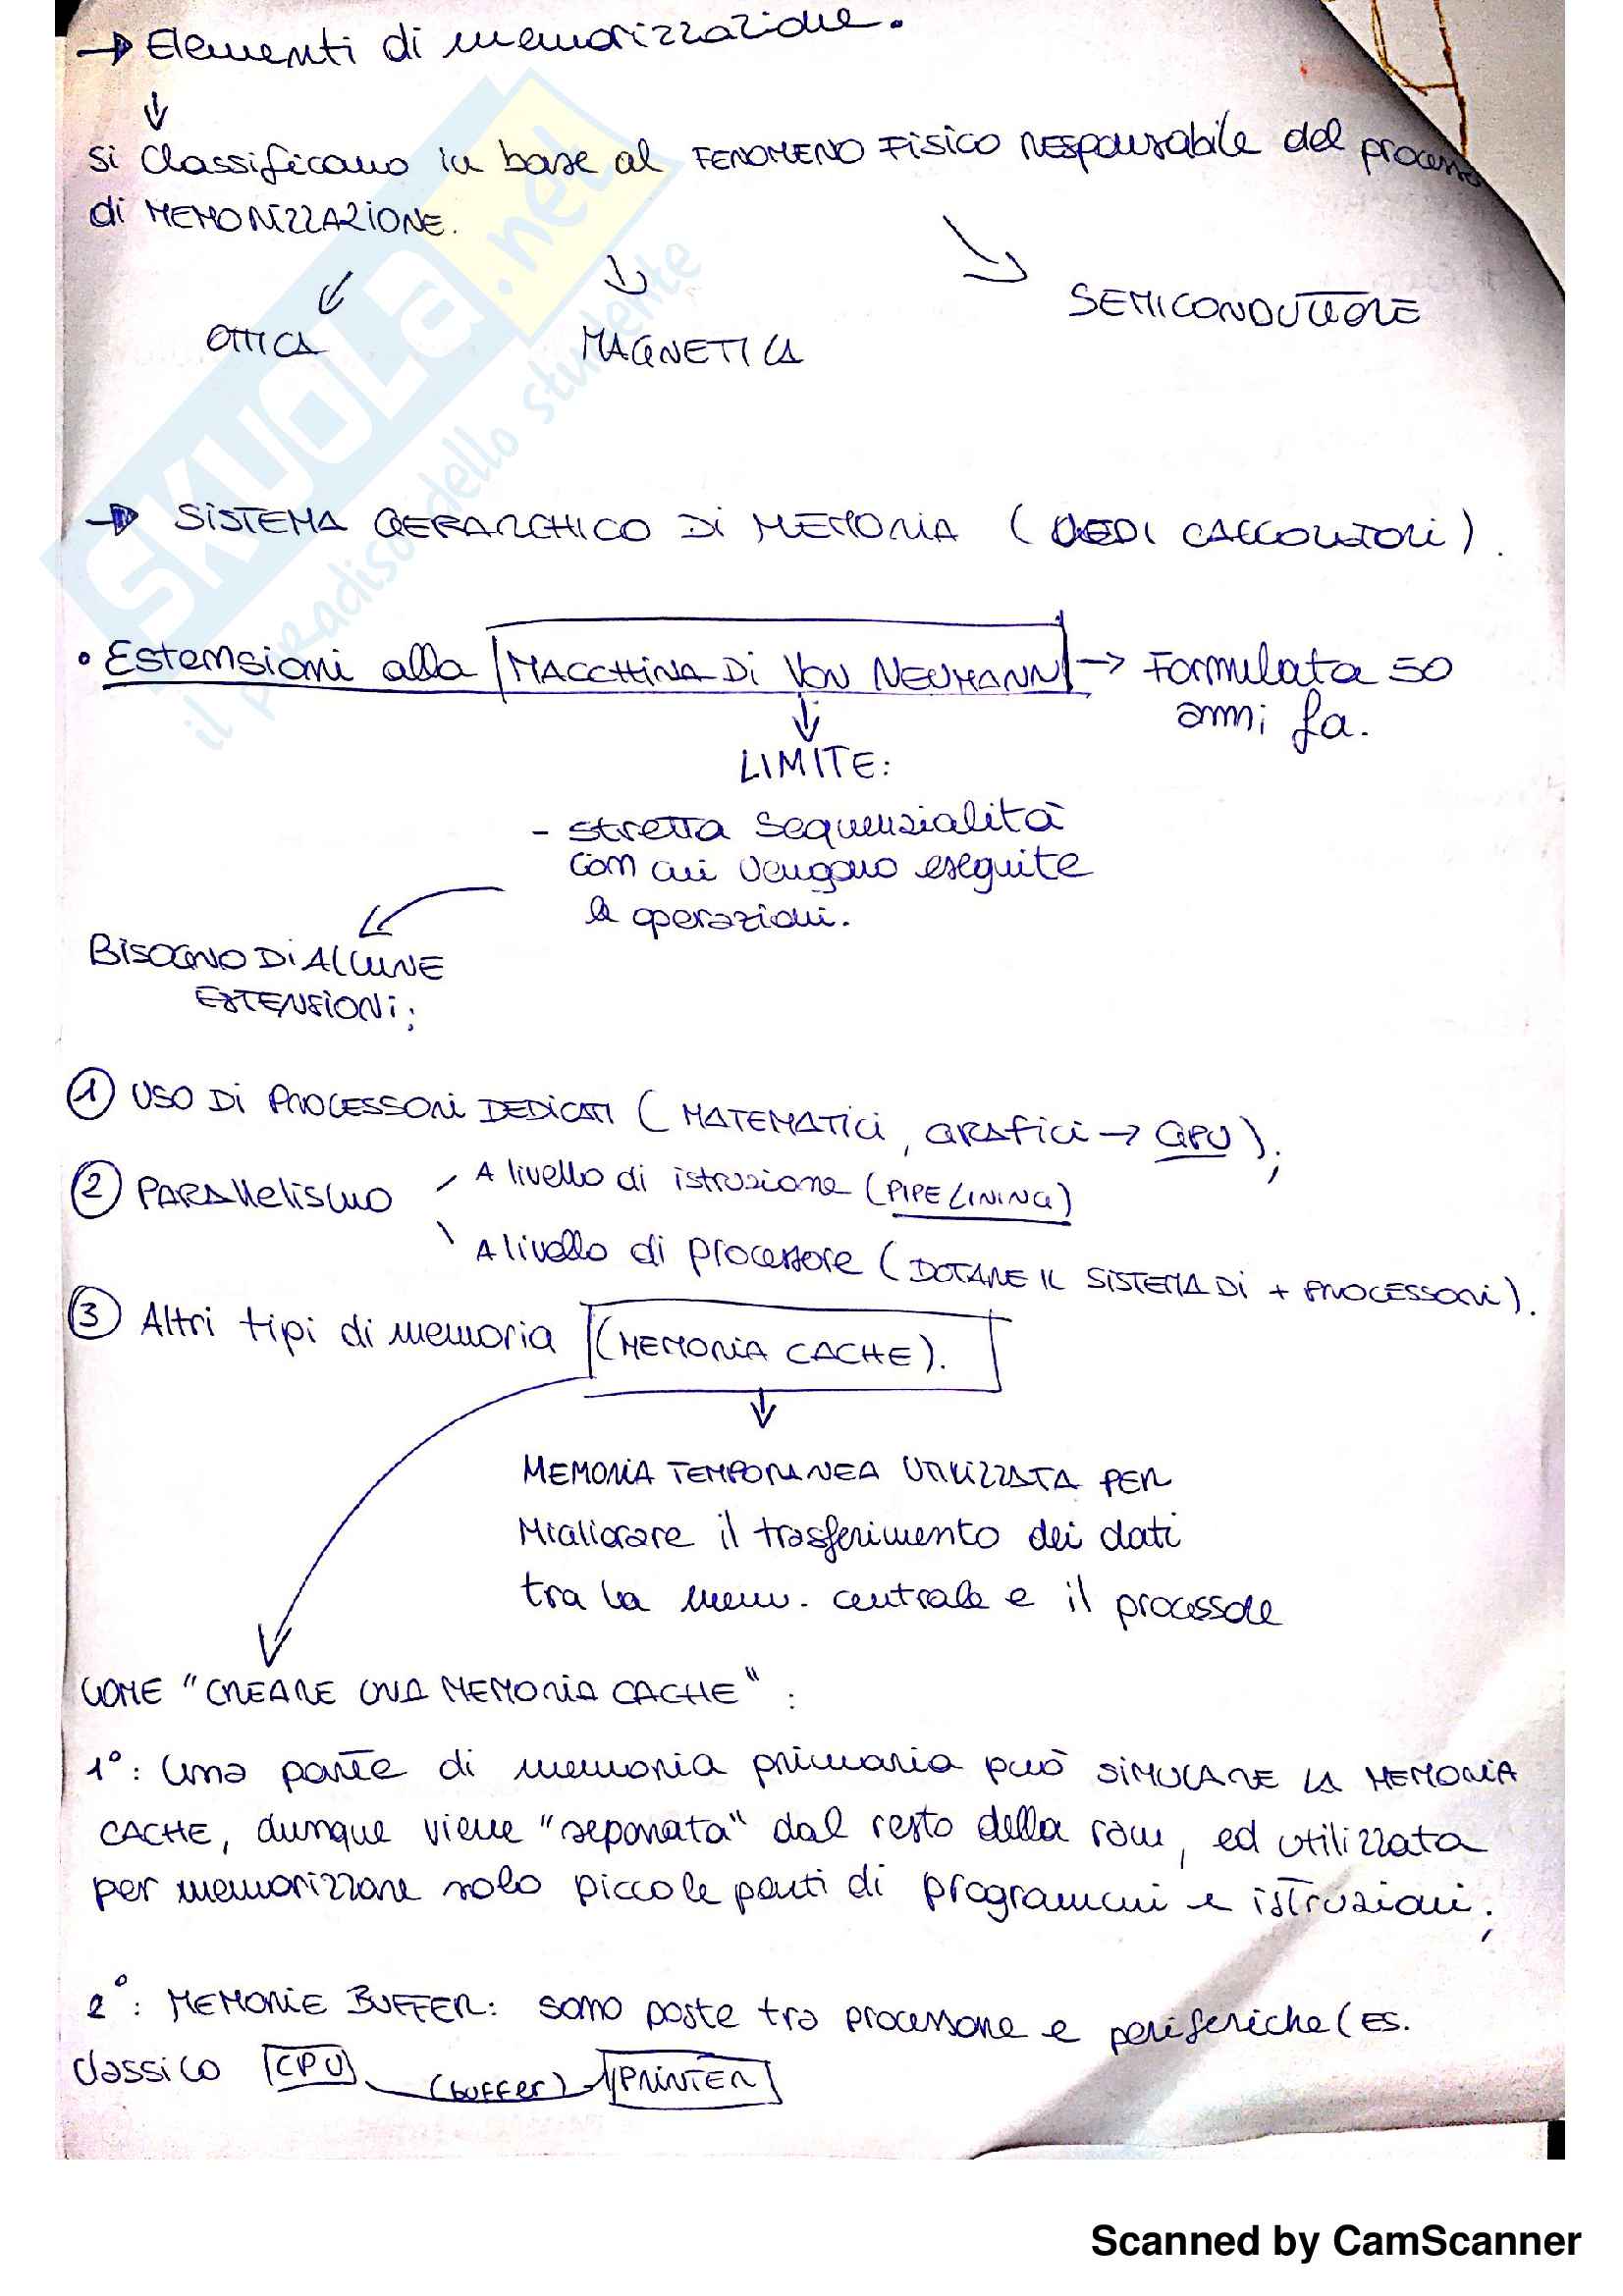 → Elementi di memorizzazione.
↓
si classificano in base al FENOMENO FISICO RESponsabile del processo
di MEMORIZZAZIONE.
↙ ↓ ↘
OTTICA MAGNETICA SEMICONDUTTORE
→ SISTEMA GERARCHICO DI MEMORIA (VEDI CALCOLATORI).
• Estensioni alla MACCHINA DI VON NEUMANN → Formulata 50
anni fa.
↓
LIMITE:
- stretta sequenzialità
con cui vengono eseguite
le operazioni.
BISOGNO DI ALCUNE
ESTENSIONI;
① USO DI PROCESSORI DEDICATI (MATEMATICI, GRAFICI → GPU);
② PARAllelismo - A livello di istruzione (PIPELINING)
\ A livello di processore (DOTARE IL SISTEMA DI + PROCESSORI).
③ Altri tipi di memoria (MEMORIA CACHE).
↓
MEMORIA TEMPORANEA UTILIZZATA PER
Migliorare il trasferimento dei dati
tra la mem. centrale e il processore
COME "CREARE UNA MEMORIA CACHE":
1°: Una parte di memoria primaria può SIMULARE LA MEMORIA
CACHE, dunque viene "separata" dal resto della ram, ed utilizzata
per memorizzare solo piccole parti di programmi e istruzioni;
2°: MEMORIE BUFFER: sono poste tra processore e periferiche (ES.
classico CPU (buffer) PRINTER
SKUOLA.net
il paradiso dello studente
Scanned by CamScanner